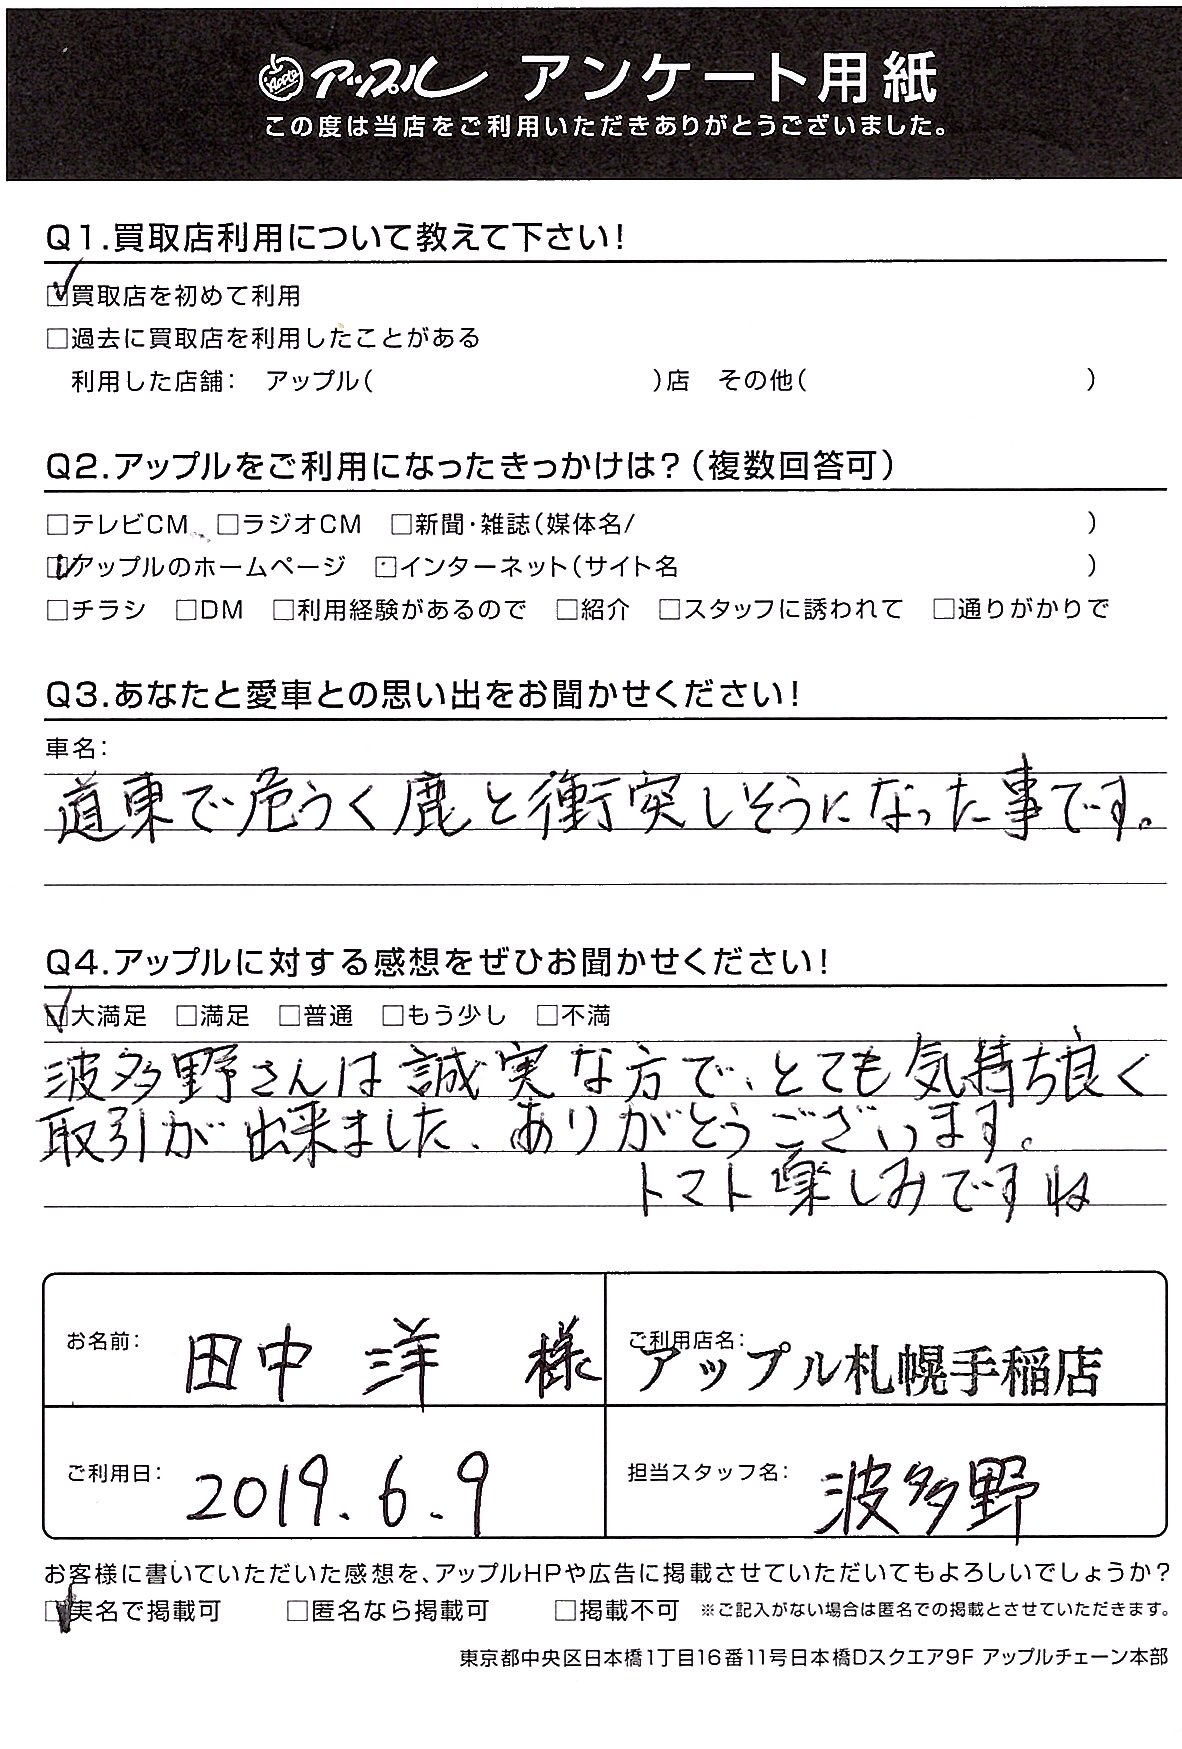 Apple アップル アンケート用紙
この度は当店をご利用いただきありがとうございました。
Q1.買取店利用について教えて下さい!
☑買取店を初めて利用
□過去に買取店を利用したことがある
利用した店舗: アップル( )店 その他( )
Q2.アップルをご利用になったきっかけは?(複数回答可)
□テレビCM □ラジオCM □新聞・雑誌(媒体名/ )
☑アップルのホームページ □インターネット(サイト名 )
□チラシ □DM □利用経験があるので □紹介 □スタッフに誘われて □通りがかりで
Q3.あなたと愛車との思い出をお聞かせください!
車名:
道東で危うく鹿と衝突しそうになった事です。
Q4.アップルに対する感想をぜひお聞かせください!
☑大満足 □満足 □普通 □もう少し □不満
波多野さんは誠実な方で、とても気持ち良く
取引が出来ました、ありがとうございます。
トマト楽しみですね
お名前: 田中 洋 様
ご利用店名: アップル札幌手稲店
ご利用日: 2019.6.9
担当スタッフ名: 波多野
お客様に書いていただいた感想を、アップルHPや広告に掲載させていただいてもよろしいでしょうか?
☑実名で掲載可 □匿名なら掲載可 □掲載不可 ※ご記入がない場合は匿名での掲載とさせていただきます。
東京都中央区日本橋1丁目16番11号日本橋Dスクエア9F アップルチェーン本部